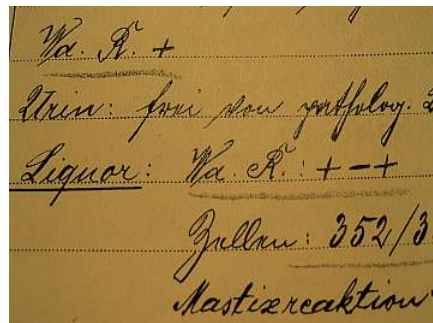 Wa. R. +
Urin: frei von patholog.
Liquor: Wa. R.: + − +
Zellen: 352/3
Mastixreaktion